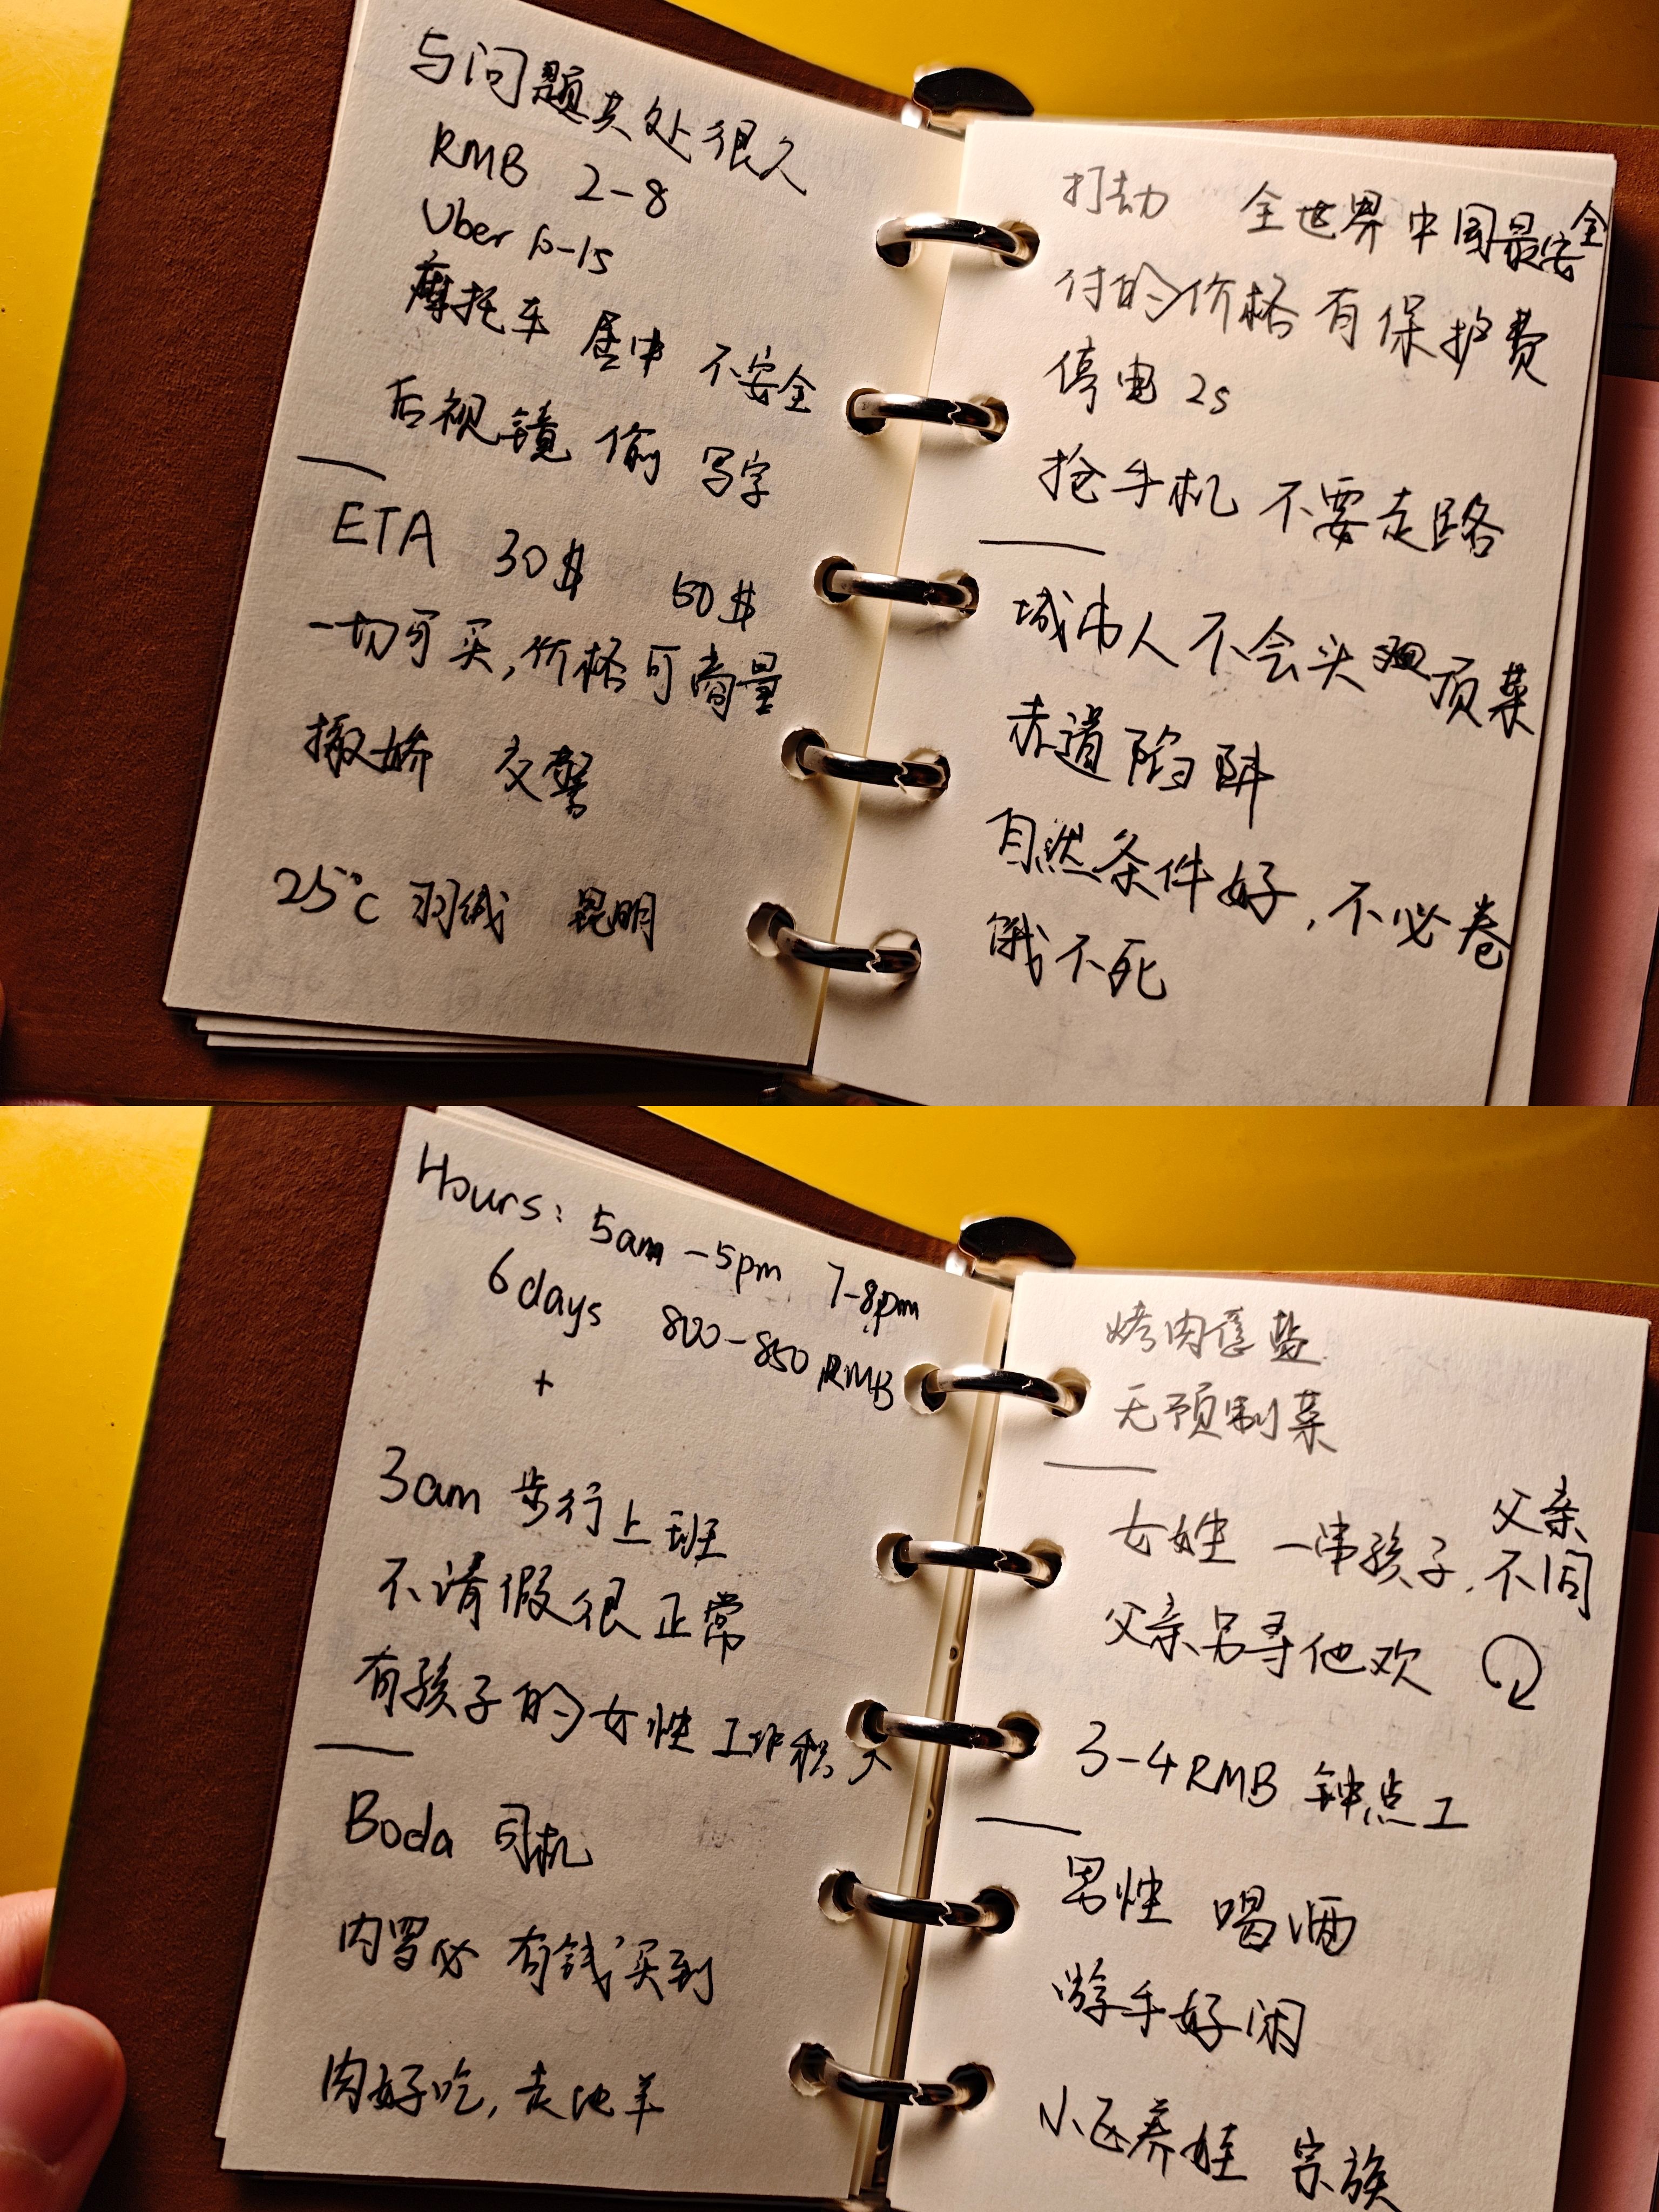 与问题共处很久
RMB 2-8
Uber 10-15
摩托车 居中 不安全
后视镜 偷 写字
ETA 30$ 50$
一切可买,价格可商量
撒娇 交警
25℃ 羽绒 昆明
打劫 全世界中国最安全
付的价格有保护费
停电 2s
抢手机 不要走路
城市人不会头顶菜
赤道陷阱
自然条件好,不必卷
饿不死
Hours: 5am-5pm 7-8pm
6days 800-850 RMB
+
3am 步行上班
不请假很正常
有孩子的女性工作积
Boda 司机
内罗毕 有钱买到
肉好吃,走地羊
烤肉蘸盐
无预制菜
女性 一串孩子,父亲不同
父亲另寻他欢
3-4RMB 钟点工
男性 喝酒
游手好闲
小区养娃 宗族